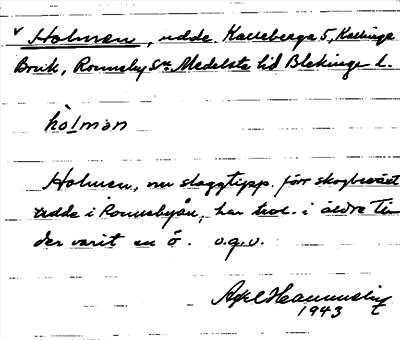 v Holmen, udde. Kalleberga 5, Kallinge
Bruk, Ronneby Sn. Medelsta hd Blekinge l.
hòlmən
Holmen, nu slaggtipp. förr skogbeväxt
udde i Ronnebyån, har trol. i äldre Ti-
der varit en ö. o.g.v.
Axel Hemmendorff
1943